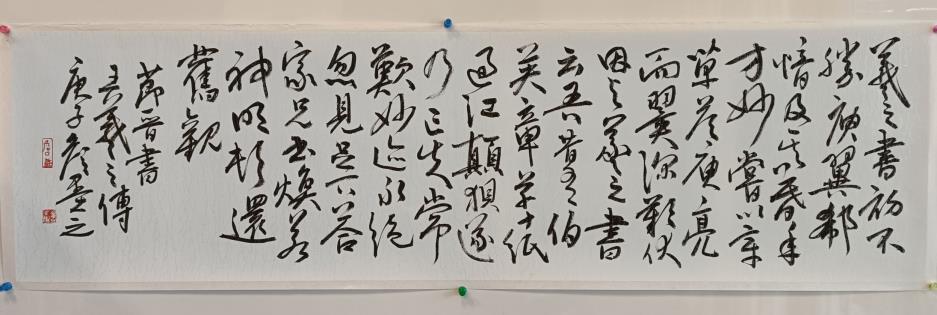 羲之書初不
勝庾翼郗
愔及其暮年
方妙嘗以章
草答庾亮
而翼深歎伏
因与羲之書
云吾昔有伯
英章草十紙
過江顛狽遂
乃亡失常
歎妙迹永絕
忽見足下答
家兄書煥若
神明頓還
舊觀
節晉書
王羲之傳
庚子